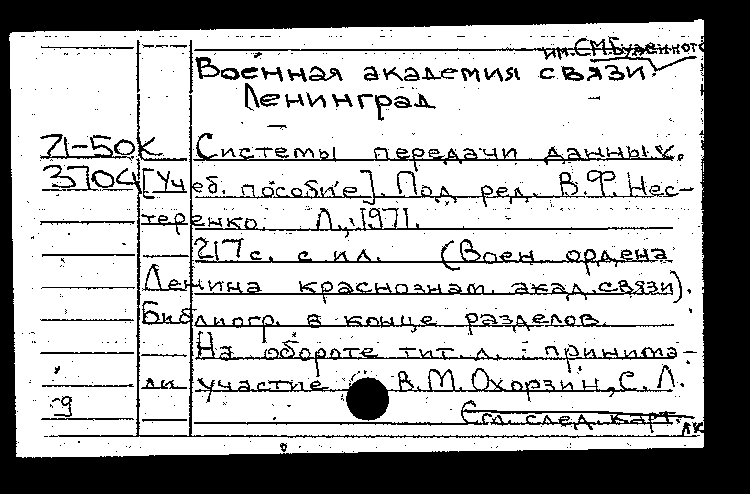 им. С.М. Буденного
Военная академия связи
Ленинград
71-50К Системы передачи данных.
3704 [Учеб. пособие]. Под ред. В.Ф. Нес-
теренко. Л., 1971.
217 с. с ил. (Воен. ордена
Ленина краснознам. акад. связи).
Библиогр. в конце разделов.
На обороте тит. л. : принима-
ли участие В.М. Охорзин, С.Л.
См. след. карт.
-9